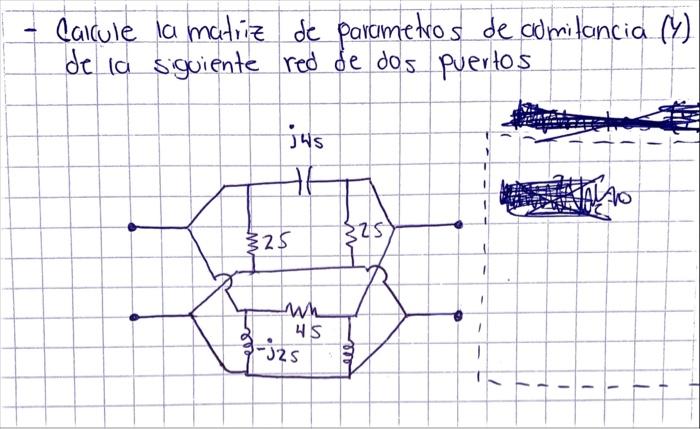 - Calcule la matriz de parametros de admitancia (Y)
de la siguiente red de dos puertos
j4s
2S
2S
4S
-j2s